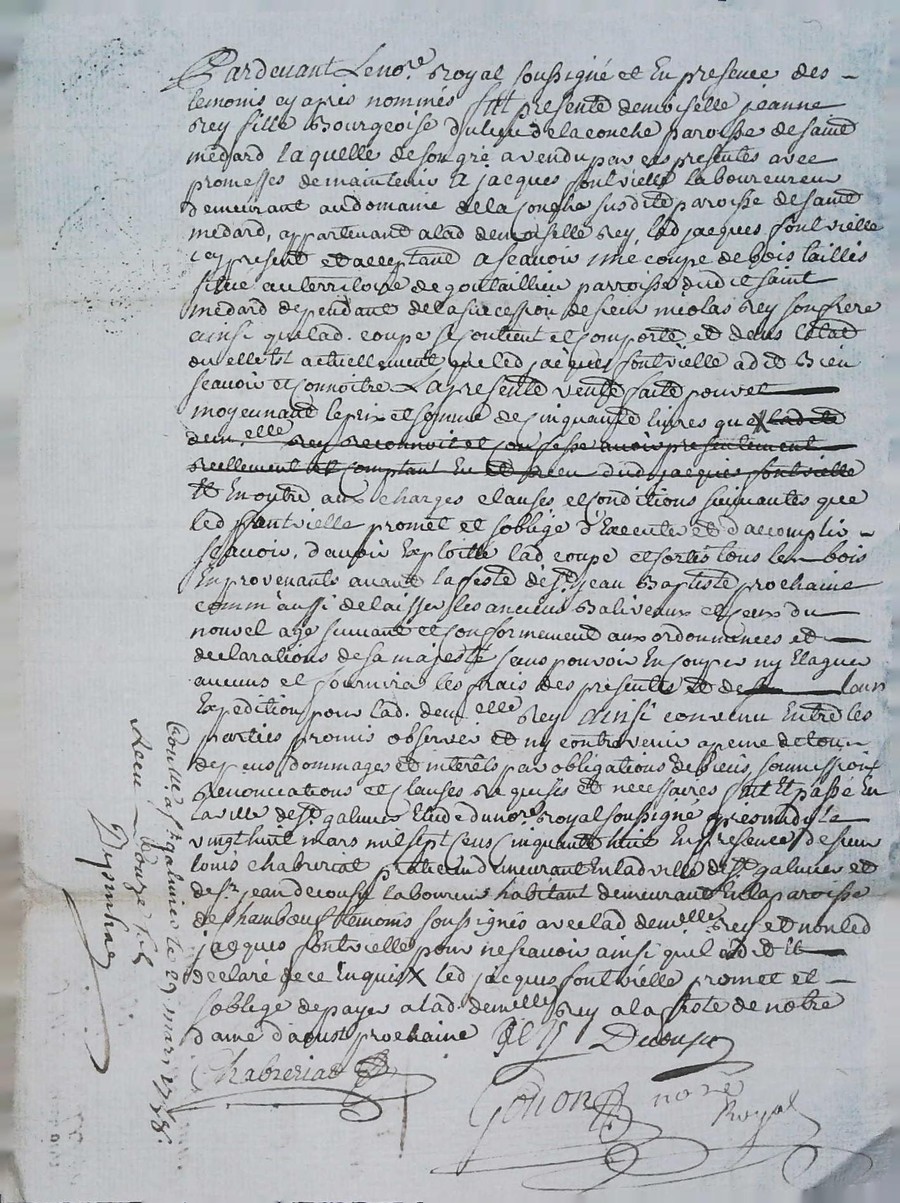 Pardevant Le no.re Royal soussigné et En presence des
temoins cy apres nommés fut presente demoiselle jeanne
Rey fille Bourgeoise du lieu de la conche paroisse de saint
medard laquelle de son gré a vendu par ces presentes avec
promesses de maintenir a jacques fontvielle laboureur
demeurant au domaine de la conche susdite paroisse de saint
medard, appartenant a lad demoiselle Rey, led jacques fontvielle
cy present et acceptant a scavoir une coupe de bois taillis
situé au territoire de goutaillieu parroisse dudit saint
medard dependant de la succession de sieur nicolas Rey son frere
ainsi que lad. coupe se contient et comporte et dans l'etat
ou elle Est actuellement que led jacques fontvielle a dit Bien
scavoir et connoitre La presente vente faite pour et
moyennant le prix et somme de cinquante livres que X lad ite
dem.elle Rey reconnoit et confesse avoir presentement
reellement et comptant Eu et dud jacques fontvielle
Et En outre aux charges clauses et conditions suivantes que
led fontvielle promet et s'oblige d'Executer et d'accomplir
scavoir, d'avoir Exploitté lad coupe et sortis tous les bois
En provenants avant la feste de S.t jean Baptiste prochaine
comm'aussi de laisser les anciens Baliveaux et ceux du
nouvel age suivant et conformement aux ordonnances et
declarations de sa majesté sans pouvoir En couper ny Elaguer
aucuns et fournira les frais des presentes et de leur
Expedition pour lad. dem.elle Rey ainsi convenu Entre les
parties promis observer et ny contrevenir a peine de tous
depens dommages et interêts par obligations de biens soumissions
Renonciations et clauses Requises et necessaires fait Et passé En
la ville de S.t galmier Etude du no.re Royal soussigné le
vingt huit mars mil sept cens cinquante huit En presence de sieur
louis chabrerias praticien demeurant En lad ville de S.t galmier et
de S.r jean decousu laboureur habitant demeurant En la paroisse
de chambeuf temoins soussignés avec lad demelle Rey et non led
jacques fontvielle pour ne scavoir ainsi qu'il a dit Et
declaré de ce Enquis X led jacques fontvielle promet et
s'oblige de payer a lad. demelle Rey a la feste de notre
dame d'aoust prochaine Rey Decousu
Chabrerias
Gonon no.re
Royal
Conllé a S.t galmier le 29 mars 1758.
Receu douze s.